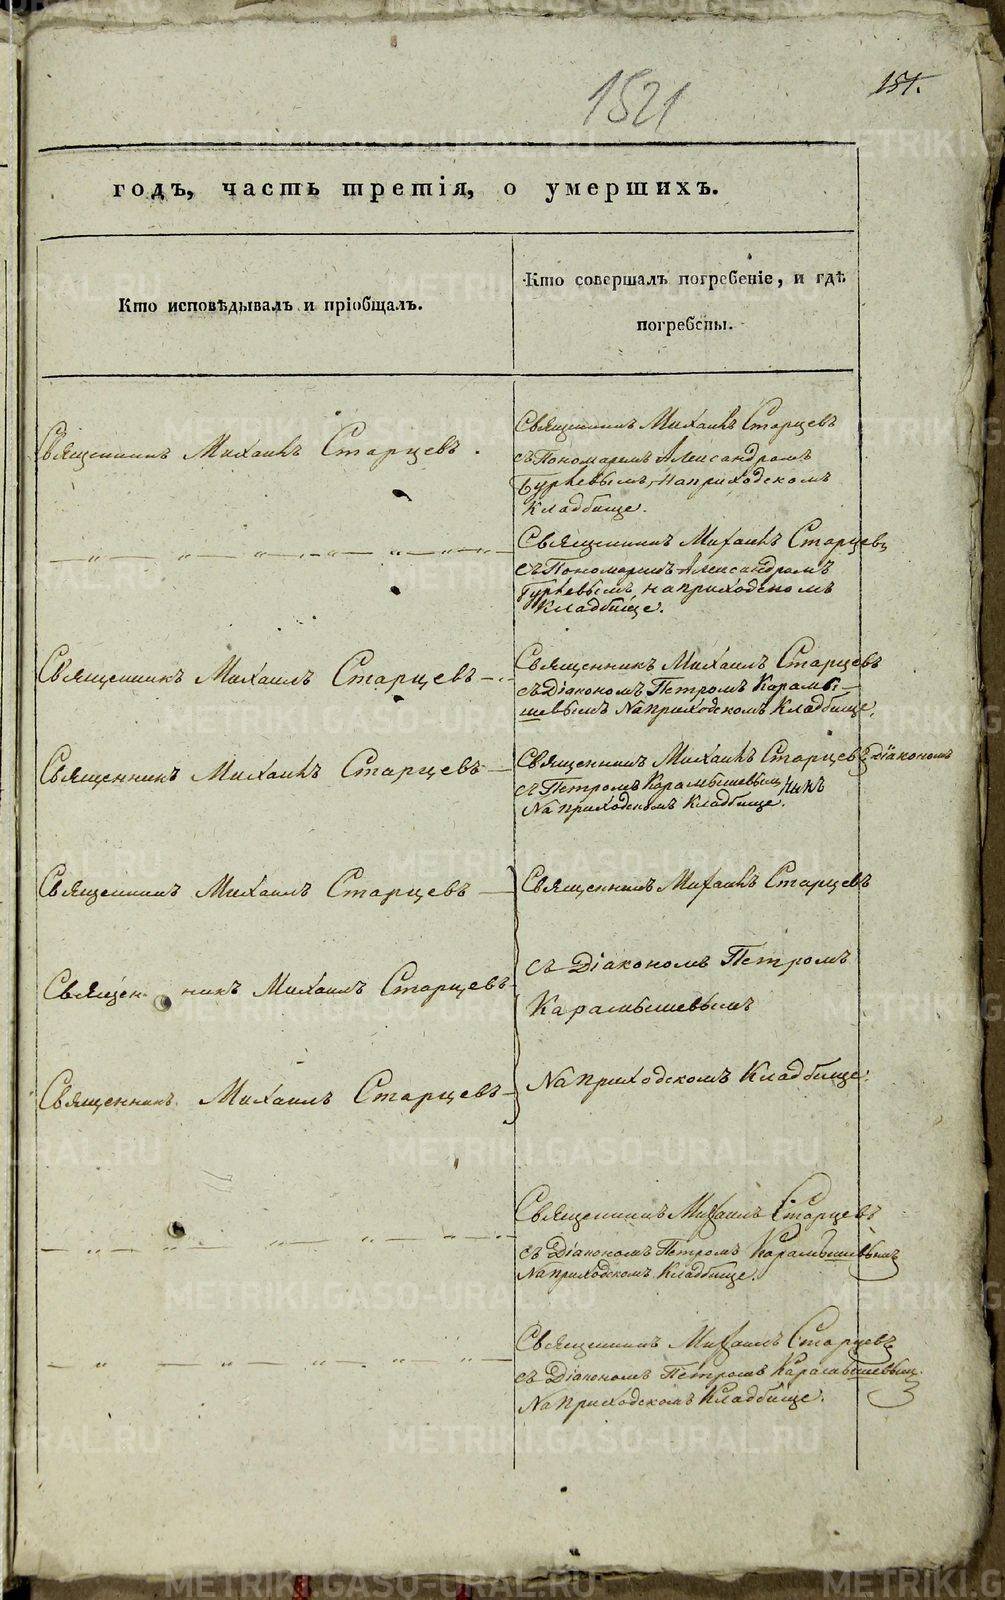 1521
151.
годъ, часть третія, о умершихъ.
Кто исповѣдывалъ и пріобщалъ.
Кто совершалъ погребеніе, и гдѣ
погребены.
Священникъ Михаилъ Старцевъ.
Священникъ Михаилъ Старцевъ
съ Пономаремъ Александромъ
Гурьевымъ, на приходскомъ
Кладбище.
— „ — „ — „ — „ — „ —
Священникъ Михаилъ Старцевъ
съ Пономаремъ Александромъ
Гурьевымъ на приходскомъ
Кладбище.
Священникъ Михаилъ Старцевъ —
Священникъ Михаилъ Старцевъ
съ Діакономъ Петромъ Карамы-
шевымъ На приходскомъ Кладбище.
Священникъ Михаилъ Старцевъ —
Священникъ Михаилъ Старцевъ Діакономъ
съ Петромъ Карамышевым
На приходскомъ Кладбище.
Священникъ Михаилъ Старцевъ —
Священникъ Михаилъ Старцевъ
Священникъ Михаилъ Старцевъ
съ Діакономъ Петромъ
Карамышевымъ
Священникъ Михаилъ Старцевъ —
На приходскомъ Кладбище.
— „ — „ — „ — „ —
Священникъ Михаилъ Старцевъ
съ Діакономъ Петромъ Карамышевымъ
На приходскомъ Кладбище.
— „ — „ — „ — „ —
Священникъ Михаилъ Старцевъ
съ Діакономъ Петромъ Карамышевым
На приходскомъ Кладбище.
METRIKI.GASO-URAL.RU